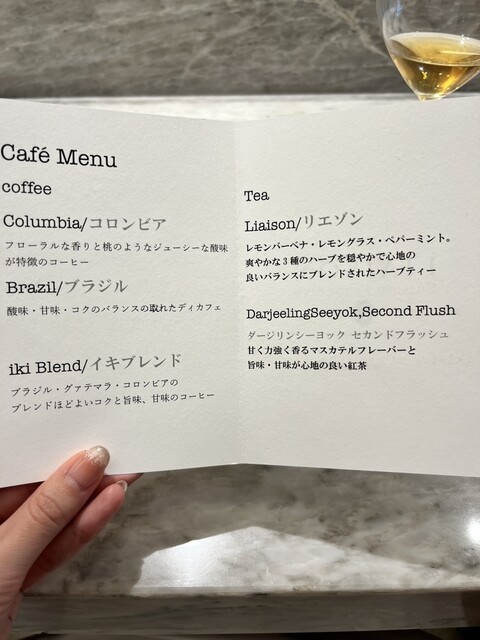 Café Menu
coffee
Columbia/コロンビア
フローラルな香りと桃のようなジューシーな酸味
が特徴のコーヒー
Brazil/ブラジル
酸味・甘味・コクのバランスの取れたディカフェ
iki Blend/イキブレンド
ブラジル・グァテマラ・コロンビアの
ブレンドほどよいコクと旨味、甘味のコーヒー
Tea
Liaison/リエゾン
レモンバーベナ・レモングラス・ペパーミント。
爽やかな3種のハーブを穏やかで心地の
良いバランスにブレンドされたハーブティー
DarjeelingSeeyok,Second Flush
ダージリンシーヨック セカンドフラッシュ
甘く力強く香るマスカテルフレーバーと
旨味・甘味が心地の良い紅茶